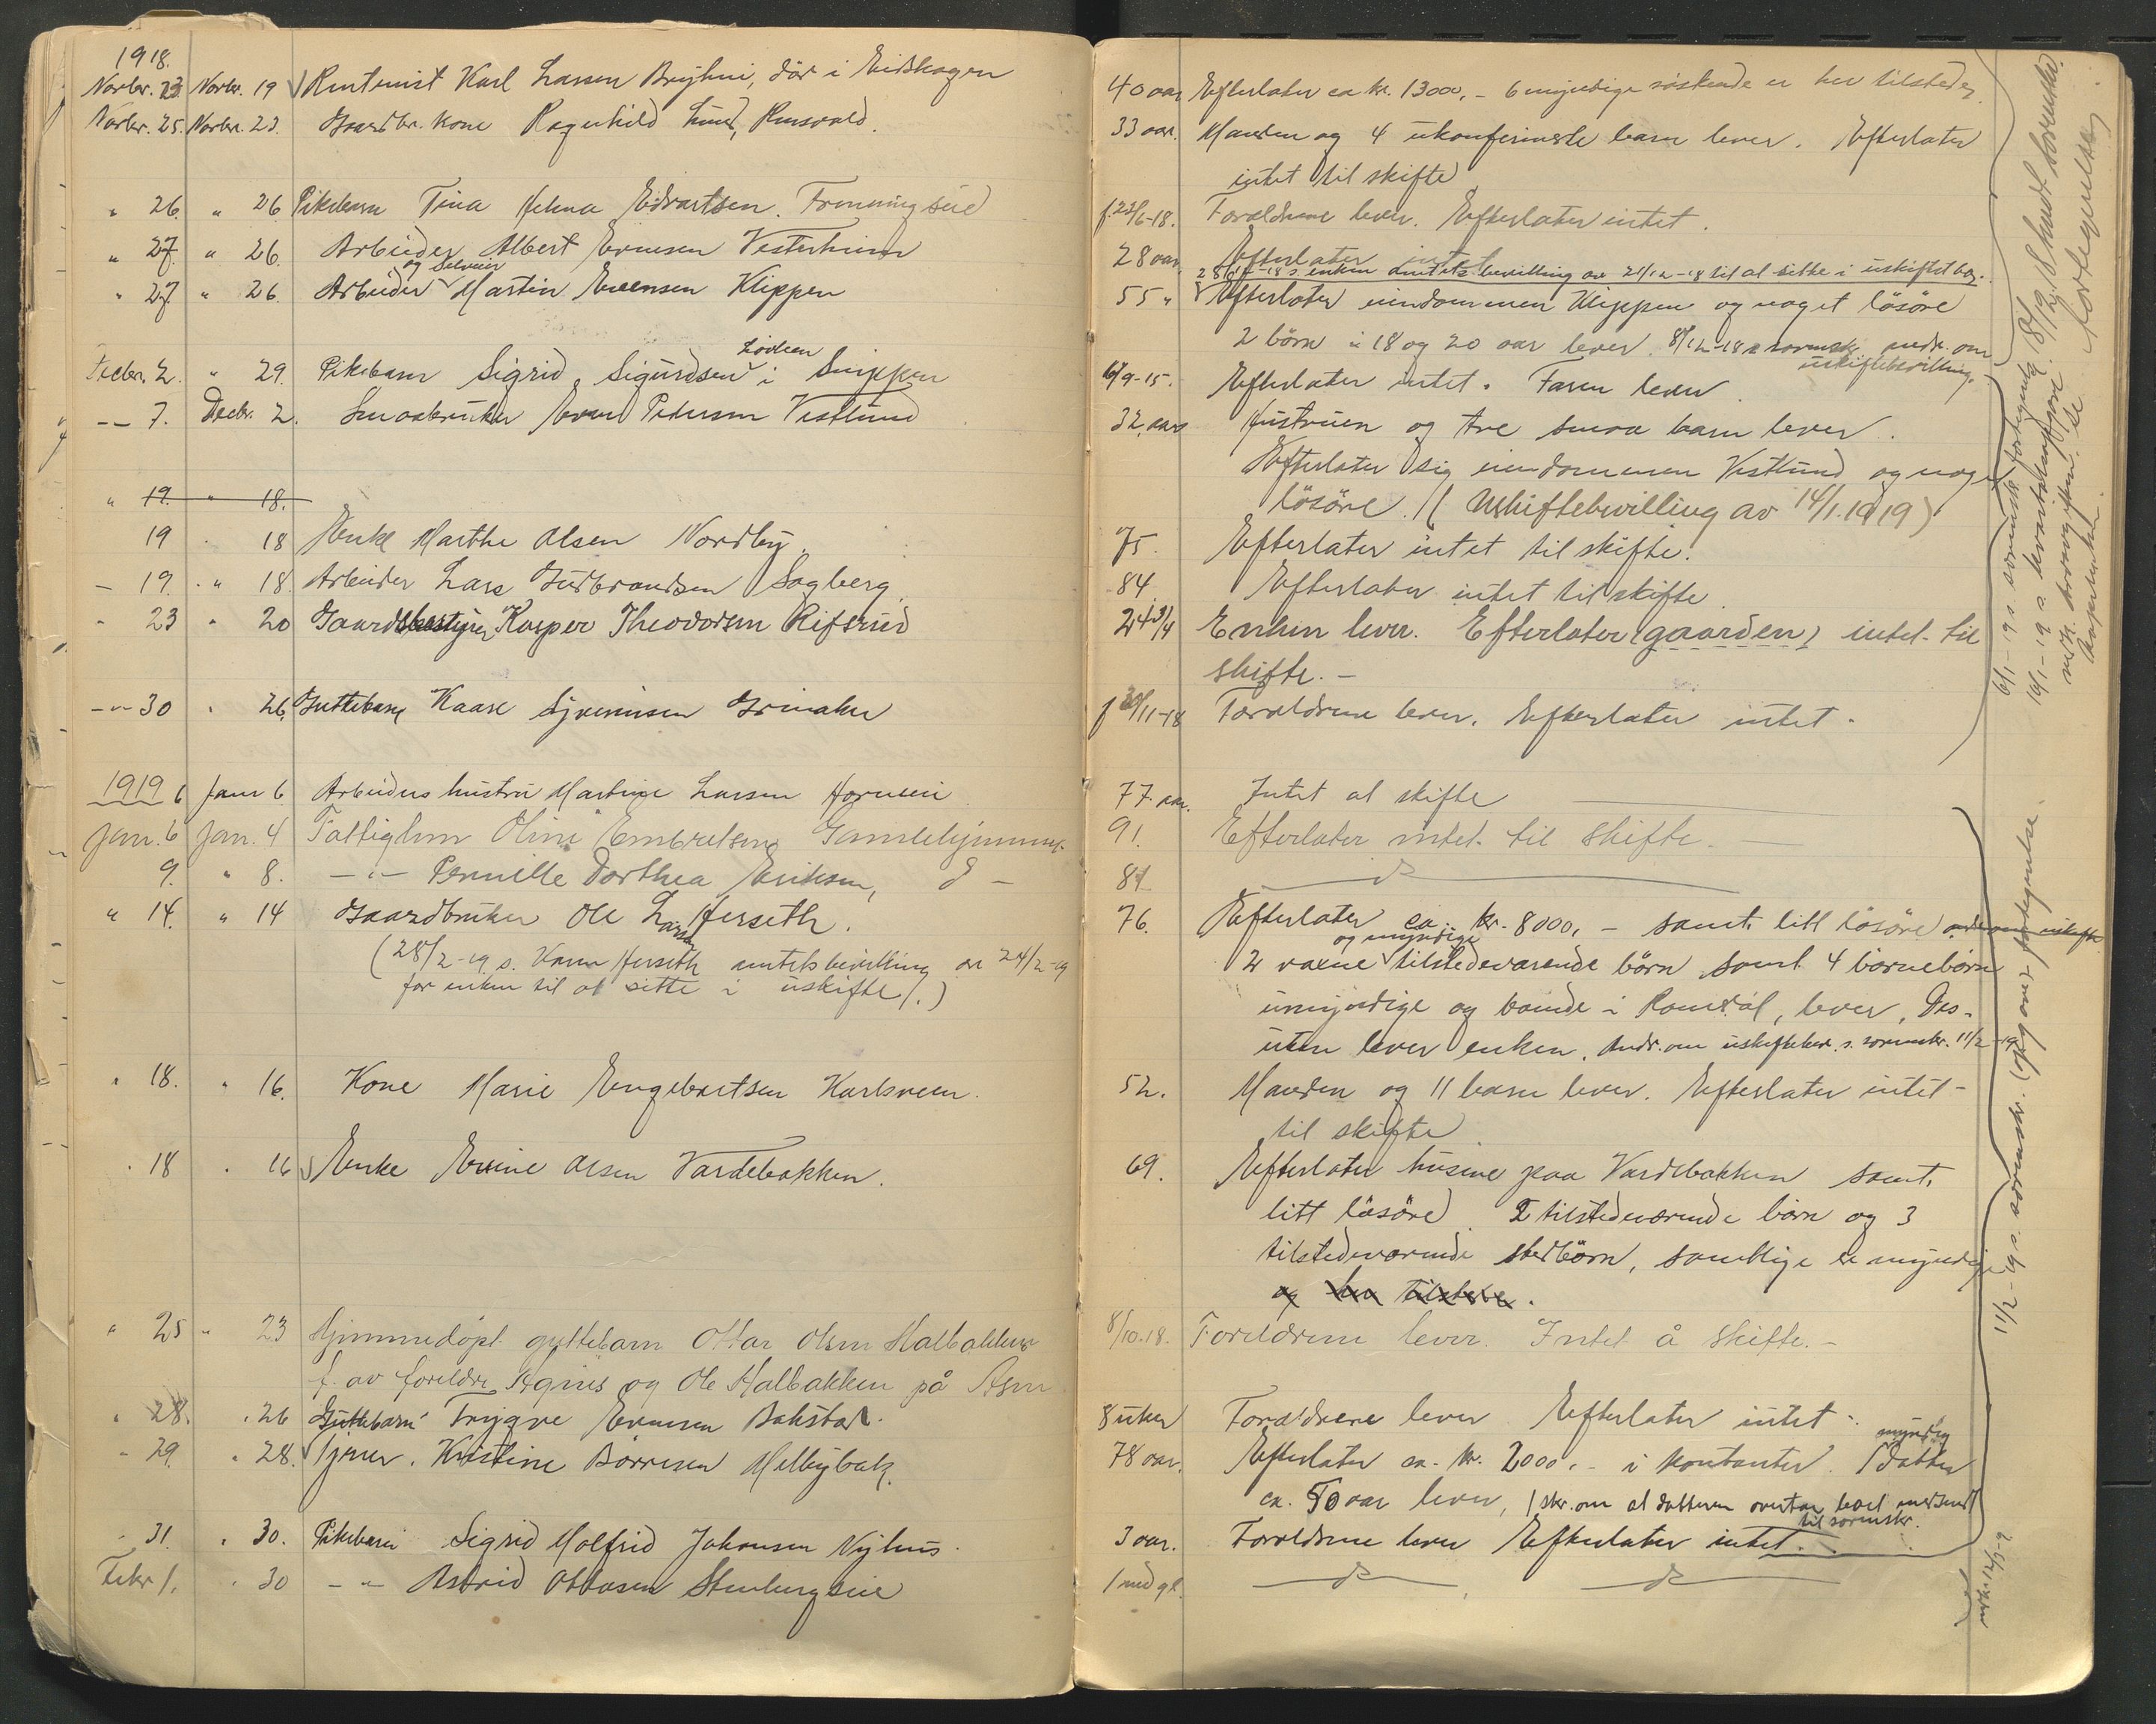 1918.
Novbr. 23. Novbr. 19 Rentenist Karl Larsen Bryhni, dör i Eidskogen
Novbr. 25. Novbr. 23. Gaardbr. kone Ragnhild Lund,
" 26. " 26 Pikebarn Tina Helma Edvartsen. Frenningseie
" 27. " 26. Arbeider Albert Evensen Vesterheim
og Selveier
" 27. " 26. Arbeider Martin Evensen Klippen
Lövliien
Decbr. 2. " 29. Pikebarn Sigrid Sigurdsen i Snippen
-"- 7. Decbr. 2. Smaabruker Even Pedersen Vestlund
" 19. " 18.
19 " 18 Enke Marthe Olsen Nordby.
- 19. " 18. Arbeider Lars Gudbrandsen Sagberg.
" 23 " 20 Gaardbestyrer Kasper Theodorsen Rifsrud
-"- 30 " 26. Guttebarn Kaare Syvensen Grinaker
1919 6 Janr 6 Arbeiders hustru Martine Larsen Horneie
Jan. 6 Jan. 4 Fattiglem Oline Embretsen, Gamlehjemmet.
9. " 8. -"- Pernille Dorthea Eriksen, d -
" 14. " 14 Gaardbruker Ole Larsen Herseth.
(28/2-19 s. Karen Herseth amtsbevilling av 24/2-19
for enken til at sitte i uskifte.)
" 18. " 16. Kone Marie Engebretsen Karlsveen.
" 18 " 16 Enke Evine Olsen Vardebakken.
" 25 " 23 Hjemmedöpt guttebarn Ottar Olsen Malbakken
f. av foreldre Agnes og Ole Malbakken på Åsen
" 28. " 26 Guttebarn Trygve Evensen Bakstad.
" 29. " 28. Tjener. Kristine Börresen Melbybak.
" 31. " 30. Pikebarn Sigrid Molfrid Johansen Nyhus.
Febr 1. " 30 -"- Astrid Ottosen Stenbergseie
40 aar Efterlater ca kr. 13000,- 6 myndige söskende er her tilstede.
33 aar. Manden og 4 ukonfirmerte barn lever. Efterlater
intet til skifte
f. 22/6-18. Forældrene lever. Efterlater intet.
28 aar. Efterlater intet
28/12-18 s. enken amtets bevilling av 21/12-18 til at sitte i uskiftet bo.
55 " Efterlater eiendommen Klippen og noget lösöre
2 börn i 18 og 20 aar lever. 8/12-18 s. sorenskr. andr. om
uskiftebevilling.
6/9-15. Efterlater intet. Faren lever.
32 aar Hustruen og tre smaa barn lever.
Efterlater sig eiendommen Vestlund og noget
lösöre. (Uskiftebevilling av 14/1.1919)
75. Efterlater intet til skifte.
84. Efterlater intet til skifte.
24 3/4 Enken lever. Efterlater (gaarden) intet til
skifte.-
f 30/11-18 Forældrene lever. Efterlater intet.
77 aar. Intet at skifte
91. Efterlater intet til skifte.
81 d
76. Efterlater ca. kr. 8000,- samt litt lösöre andr. om uskifte
og myndige
2 voxne tilstedeværende börn samt 4 barnebörn
umyndige og boende i Romedal, lever. Des-
uten lever enken. Andr. om uskiftebev. s. sorenskr. 11/2-19
52. Manden og 11 barn lever. Efterlater intet
til skifte.
69. Efterlater husene paa Vardebakken samt
litt lösöre. 2 tilstedeværende börn og 3
tilstedeværende stedbörn, samtlige er myndige
og her tilstede.
8/10.18. Foreldrene lever. Intet å skifte.-
8 uker Forældrene lever Efterlater intet.
myndig
78 aar. Efterlater ca. kr. 2000,- i kontanter. 1 datter
ca. 50 aar lever, 1 skr. om at datteren overtar boet medsendt
til sorenskr.
3 aar. Forældrene lever Efterlater intet.
1 md gl. d d
6/1-19 s. sorenskr. fortegnelse 18/12 18 sendt sorenskr.
16/1-19 s.
11/2-19 s. sorenskr. (opgave) fortegnelse.